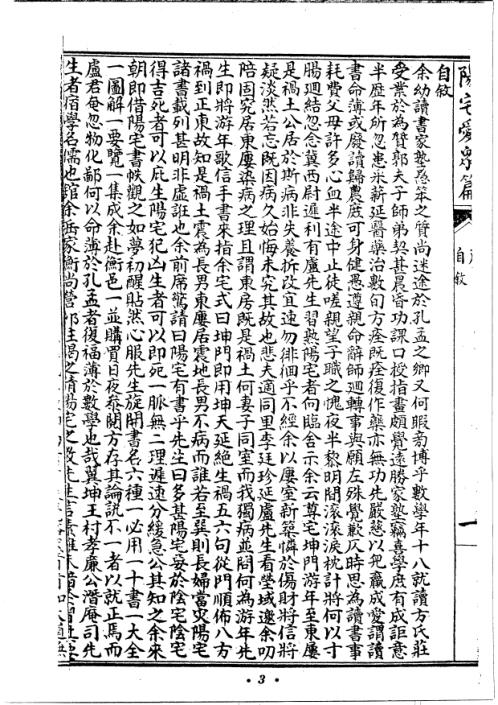 陽宅愛眾篇
自敘
一
自敘
余幼讀書家塾愚笨之質尚迷途於孔孟之鄉又何暇旁博乎數學年十八就讀方氏莊
受業於為贊郭夫子師弟契甚晨昏功課口授指畫頗覺遠勝家塾竊喜學庶有成詎意
半歷年所忽患采薪延醫藥治數旬方痊既痊復作藥亦無功先嚴慈以兒羸成愛謂讀
書命薄或廢讀歸農庶可身健愚遵親命辭師迴轉事與願左殊覺歉仄時思為讀書事
耗費父母許多心血半途中止徒嗟親望子職之愧夜半黎明閣滾滾淚枕計將何以寸
腸迴結忽念冀西尉遲利有盧先生習熟陽宅者向臨舍示余云尊宅坤門游年至東屢
是禍土公居於斯病非失養拆改宜速勿徘徊乎不經余以屢室新築憐於傷財將信將
疑淡然若忘既因病久始悔未究其故也悲夫適同里李廷珍延盧先生看塋域邀余叨
陪固究居東屢染病之理且謂東房既是禍土何妻子同室而我獨病並問何為游年先
生即將游年歌信手書來指余宅式曰坤門即用坤天延絕生禍五六句從門順佈八方
禍到正東故知是禍土震為長男東屢居震地長男不病而誰若至巽則長婦當災陽宅
諸書載列甚明非虛誑也余前席驚請曰陽宅有書乎先生曰多甚陽宅妥於陰宅陰宅
得吉死者可以庇生陽宅犯凶生者可以即死一脈無二理遲速分緩急公其知之余來
朝即借陽宅書帙觀之如夢初醒貼然心服先生旋開書名六種一必用一十書一大全
一圖解一要覽一集成余赴衡邑一並購買日夜叅閱方存其論說不一者以就正焉而
盧君奄忽物化鄙何以命薄於孔孟者復福薄於數學也哉冀坤王村孝廉公潛庵司先
生者宿學名儒也館余岳家衡尚營
• 3 •